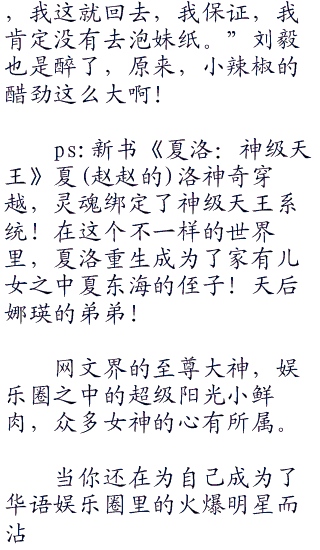 ，我这就回去，我保证，我
肯定没有去泡妹纸。” 刘毅
也是醉了，原来，小辣椒的
醋劲这么大啊！
ps: 新书《夏洛：神级天
王》夏 (赵赵的) 洛神奇穿
越，灵魂绑定了神级天王系
统！在这个不一样的世界
里，夏洛重生成为了家有儿
女之中夏东海的侄子！天后
娜瑛的弟弟！
网文界的至尊大神，娱
乐圈之中的超级阳光小鲜
肉，众多女神的心有所属。
当你还在为自己成为了
华语娱乐圈里的火爆明星而
沾